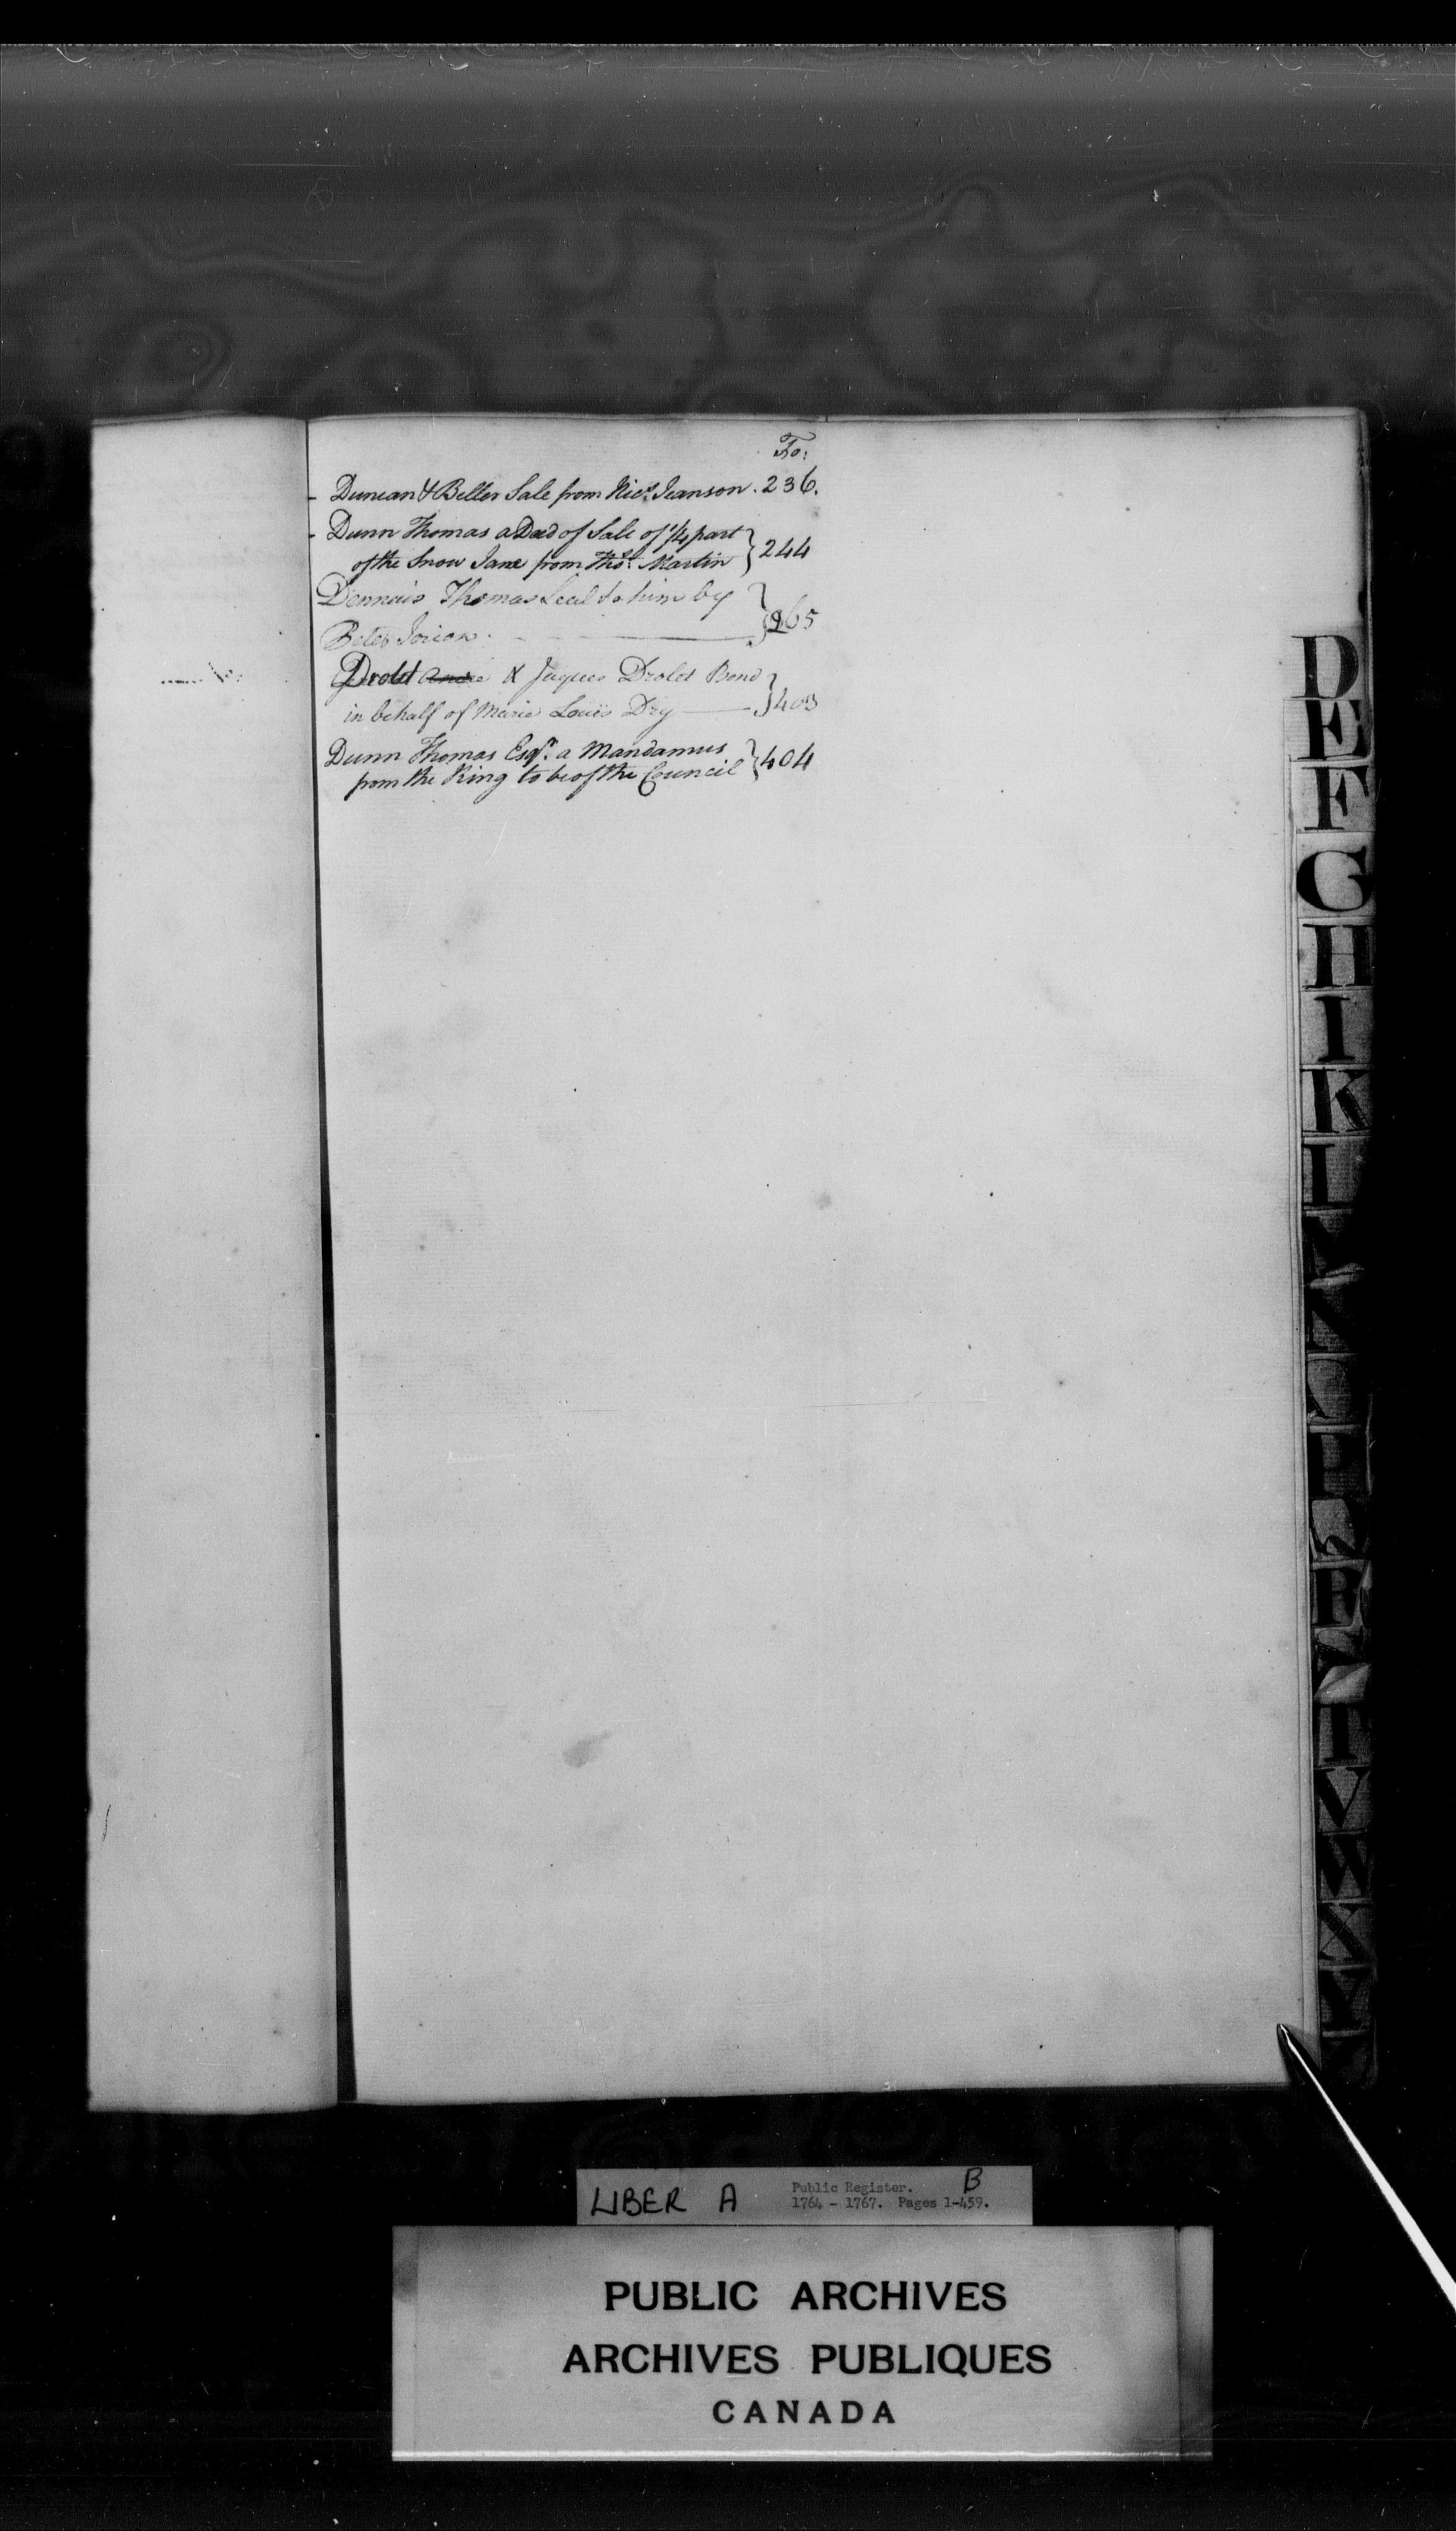 Fo:
- Duncan & Beller Sale from Nics. Jeanson . 236.
- Dunn Thomas a Deed of Sale of 1/4 part
of the Snow Jane from Thos. Martin } 244
Dennais Thomas to him by
Peter } 265
Drolet & Jaques Drolet Bond
in behalf of Marie Louis Dry } 403
Dunn Thomas Esqr. a Mandamus
from the King to be of the Council } 404
D
E
F
G
H
I
K
L
P
R
T
V
W
X
Y
LIBER A
Public Register. B
1764 - 1767. Pages 1-459.
PUBLIC ARCHIVES
ARCHIVES PUBLIQUES
CANADA